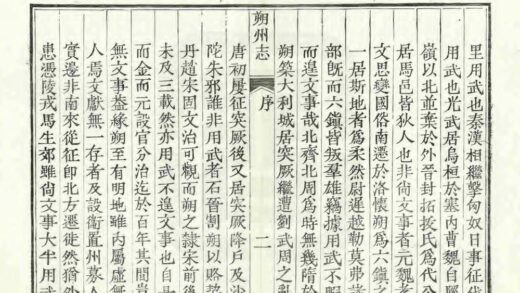 里用武也秦漢相繼擊匈奴日事征
用武也光武居烏桓於塞內曹魏自
嶺以北並棄於外晉封拓拔氏爲代公
居馬邑皆狄人也非尙文事者元魏孝
文思變國俗南遷於洛懷朔爲六鎮之
一居斯地者爲柔然尉遲越勒莫弗諸
部旣而六鎮皆叛羣雄竊據用武不暇
而遑文事哉北齊北周爲時無幾隋於
朔築大利城居突厥繼遭劉武周之亂
朔州志
序
二
唐初屢征突厥後又居突厥降戶及沙
陀朱邪誰非用武者石晉割朔以賂契
丹趙宋固文治可觀而朔之隸宋前後
未及三載然亦用武不遑文事也自是
而金而元設官分治迄於百年其間
無文事葢緣朔至有明地雖內屬虛無
人焉文獻無一存者及設衞置州募人
實邊非南來從征卽北方遷徙然猶外
患憑陵戎馬生郊雖尙文事大半用武